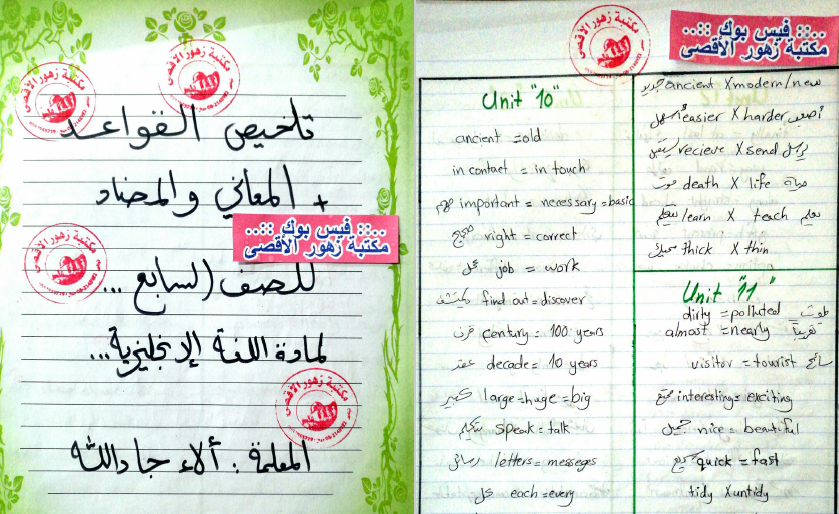 تلخيص القواعد
+ المعاني والمضاد
..:: فيس بوك ::..
مكتبة زهور الأقصى
للصف السابع ...
لمادة اللغة الإنجليزية...
المعلمة : ألاء جادالله
مكتبة زهور الأقصى
..:: فيس بوك ::..
مكتبة زهور الأقصى
Unit "10"
ancient = old
in contact = in touch
مهم important = necessary = basic
صحيح right = correct
عمل job = work
يكتشف find out = discover
قرن century = 100 years
عقد decade = 10 years
كبير large = huge = big
يتكلم speak = talk
رسائل letters = messeges
كل each = every
جديد ancient X modern/new
أسهل easier X harder أصعب
يستقبل recieve X send يرسل
موت death X life حياة
يتعلم learn X teach يعلم
سميك thick X thin
Unit "11"
dirty = polluted ملوث
almost = nearly تقريباً
visitor = tourist سائح
ممتع interesting = exciting
جميل nice = beautiful
سريع quick = fast
tidy X untidy